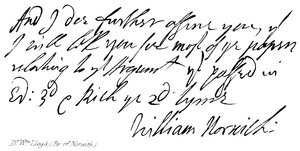 And I doe further assure you, yt
I will let you see most of ye papers
relating to yt Argument yt passed in
Ed: 3d & Rich ye 2d time
William Norwich:
Dr Wm Lloyd (Bp. of Norwich)